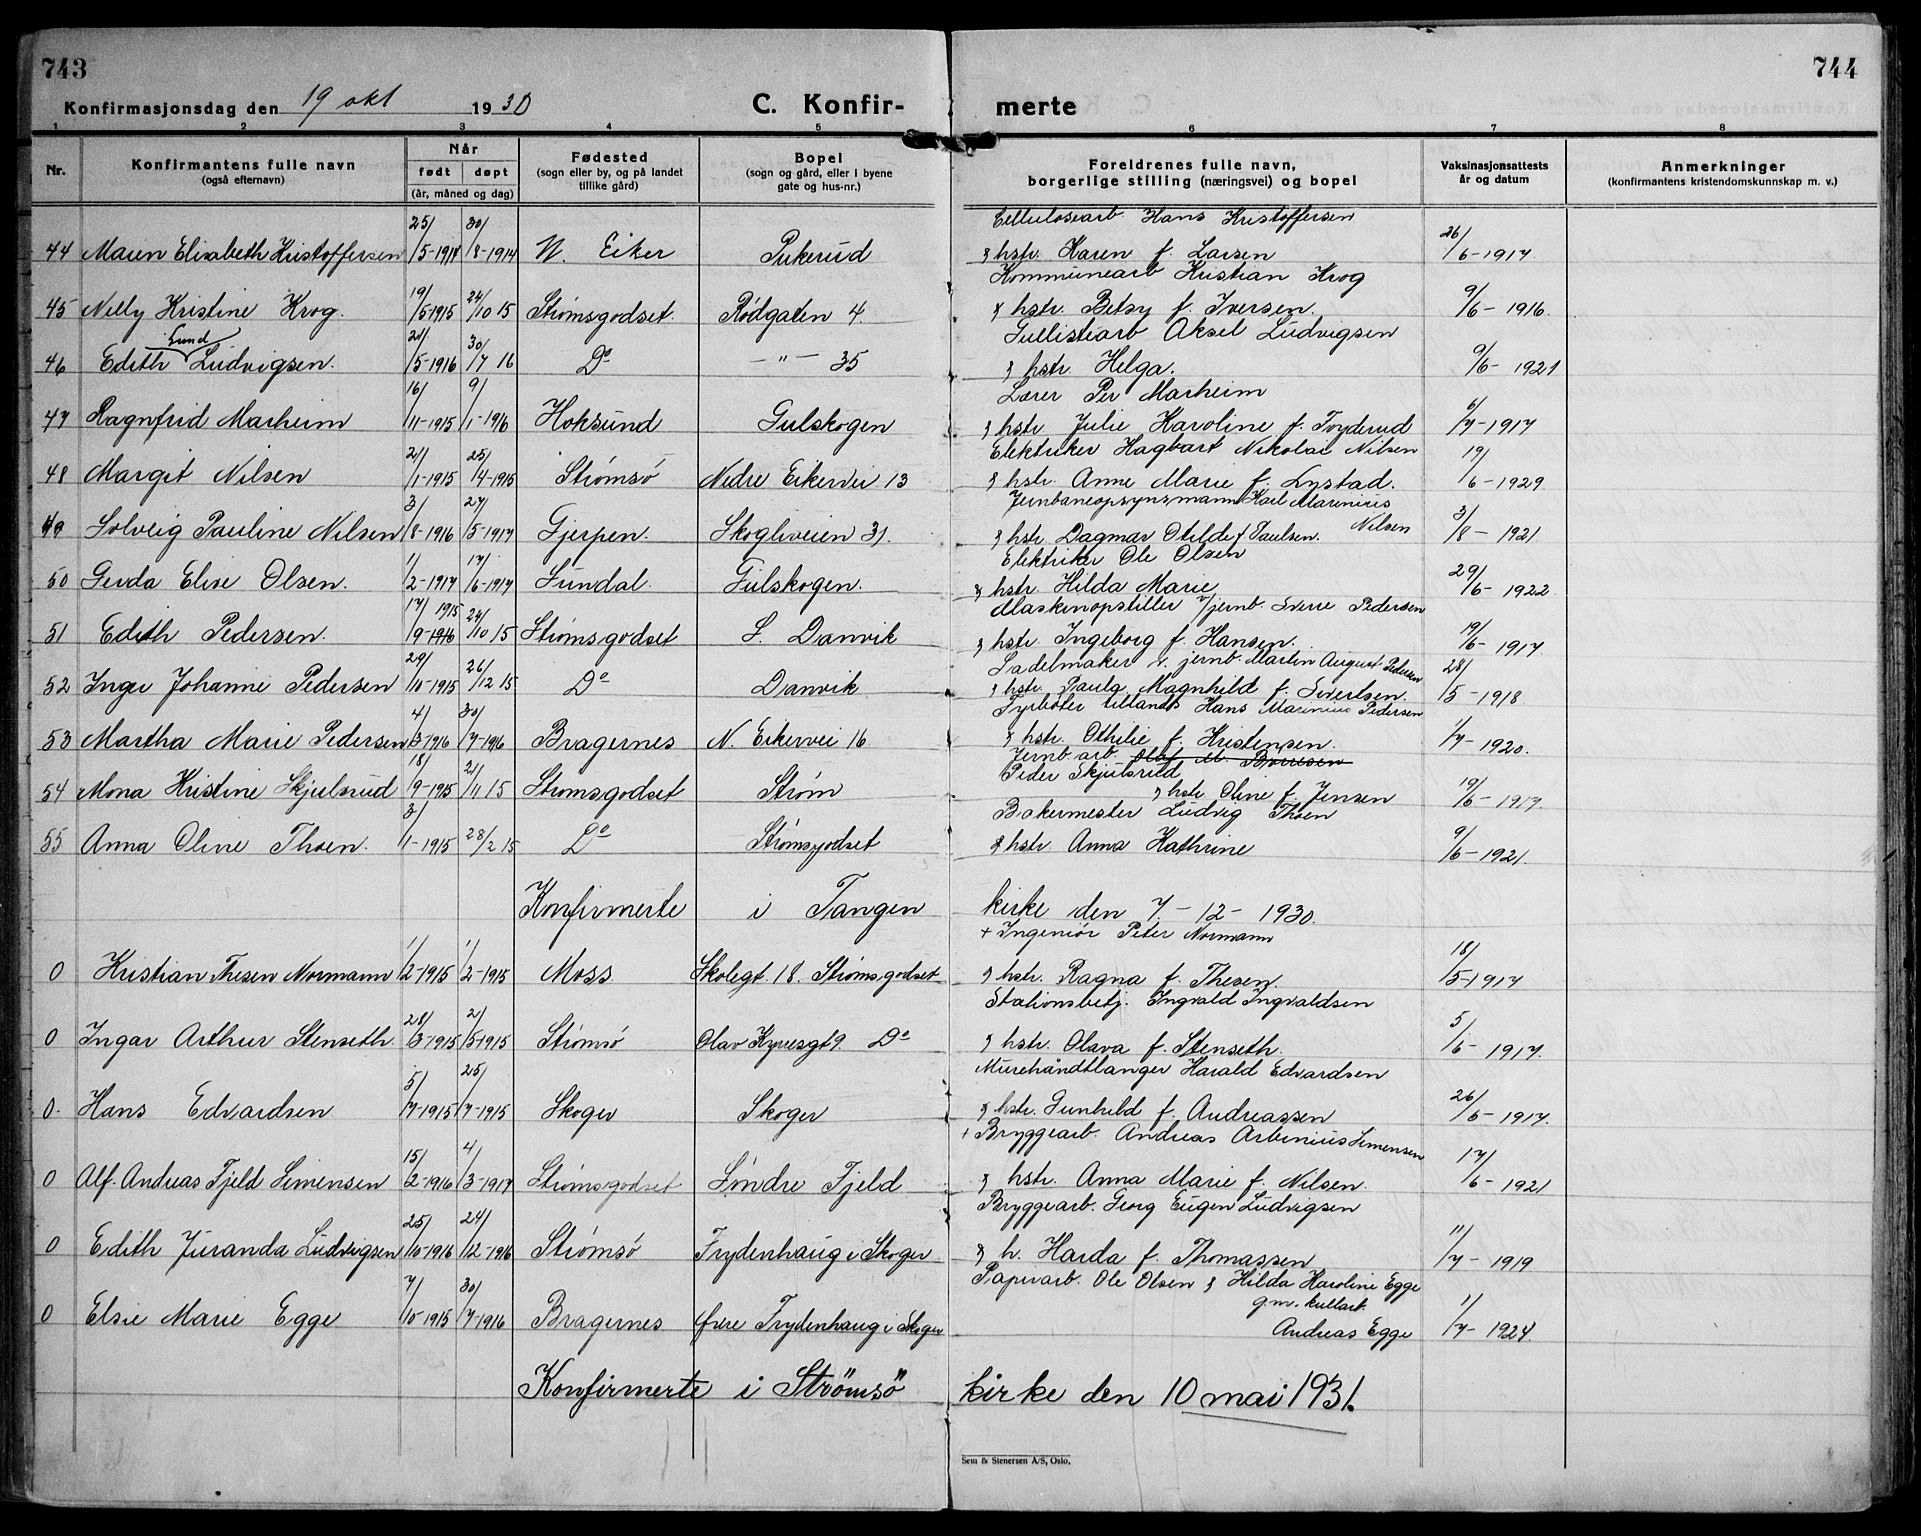 743
744
Konfirmasjonsdag den 19 okt 1930
C. Konfir-
merte
1 2 3 4 5 6 7 8
Nr.
Konfirmantens fulle navn
(også efternavn)
Når
født døpt
(år, måned og dag)
Fødested
(sogn eller by, og på landet
tillike gård)
Bopel
(sogn og gård, eller i byene
gate og hus-nr.)
Foreldrenes fulle navn,
borgerlige stilling (næringsvei) og bopel
Vaksinasjonsattests
år og datum
Anmerkninger
(konfirmantens kristendomskunnskap m. v.)
Cellulosearb. Hans Kristoffersen
44 Maren Elisabeth Kristoffersen 25/5-1914 30/8-1914 N. Eiker Pukerud & hstr. Karen f. Larsen 26/6-1917.
Kommunearb Kristian Krog
45 Nelly Kristine Krog. 19/5-1915 24/10 15 Strømsgodset. Rødgaten 4. & hstr. Betsy f. Iversen. 9/6-1916.
Gullistearb Aksel Ludvigsen
46 Edith Lund Ludvigsen. 21/5-1916 30/7 16 Do -"- 35 & hstr. Helga. 9/6-1921
Lærer Per Marheim
47 Ragnfrid Marheim 16/11-1915 9/1-1916 Hoksund Gulskogen & hstr. Julie Karoline f. Tryderud 6/7-1917
Elektriker Hagbart Nikolai Nilsen
48 Margit Nilsen 21/1-1915 25/4-1915 Strømsø Nedre Eikervei 13 & hstr. Anne Marie f. Lystad. 19/6-1929.
Jernbaneopsynsmann Karl Marinius
49 Solveig Pauline Nilsen 3/8-1916 27/5-1917 Gjerpen. Skogliveien 31. & hstr. Dagmar Otilde f Paulsen. Nilsen 3/8-1921
Elektriker Ole Olsen
50 Gerda Elise Olsen. 1/2-1917 17/6-1917 Sundal. Gulskogen. & hstr. Hilda Marie 29/6-1922
Maskinopstiller v/jernb. Sverre Pedersen
51 Edith Pedersen. 17/9-1916 1915 24/10 15 Strømsgodset S. Danvik & hstr. Ingeborg f. Hansen. 19/6-1917.
Sadelmaker v. jernb. Martin August Pedersen
52 Inger Johanne Pedersen 29/10-1915 26/12 15 Do Danvik & hstr. Paula Magnhild f. Sivertsen. 28/5-1918
Fyrbøter tillands Hans Marinius Pedersen
53 Martha Marie Pedersen 4/3-1916 30/7-1916 Bragernes N. Eikervei 16. & hstr. Othilie f. Kristensen. 1/7-1920.
Jernb. arb. Olaf M.
Peder Skjulsrud
54 Mona Kristine Skjulsrud 18/9-1915 21/11 15 Strømsgodset Strøm & hstr. Oline f. Jensen 19/6-1917.
Bakermester Ludvig Thoen
55 Anna Oline Thoen. 3/1-1915 28/2 15 Do Strømsgodset & hstr. Anna Kathrine 9/6-1921.
Konfirmerte i Tangen kirke den 7.-12-1930.
+ Ingeniør Peter Normann
0 Kristian Thesen Normann 1/2-1915 1/2-1915 Moss Skolegt. 18. Strømsgodset & hstr. Ragna f. Thesen. 18/5-1917
Stationsbetj. Ingvald Ingvaldsen
0 Ingar Arthur Stenseth. 28/3-1915 2/5-1915 Strømsø Olav Kyrresgt 9. Do & hstr. Olava f. Stenseth. 5/6-1917.
Murehåndtlanger Harald Edvardsen
0. Hans Edvardsen 5/7-1915 25/7-1915 Skoger Skoger & hstr. Gunhild f. Andreassen 26/6-1917.
+ Bryggearb. Andreas Arbinius Simensen
0 Alf. Andreas Fjeld Simensen 15/2-1916 4/3-1917 Strømsgodset Søndre Fjeld & hstr. Anna Marie f. Nilsen. 17/6-1921
Bryggearb. Georg Eugen Ludvigsen
0 Edith Juranda Ludvigsen 25/10-1916 24/12-1916 Strømsø Frydenhaug i Skoger & h. Harda f. Thomassen 11/7-1919
Papirarb. Ole Olsen & Hilda Karoline Egge
g.m. kullarb.
0 Elsie Marie Egge 7/10-1915 30/7-1916 Bragernes øvre Frydenhaug i Skoger Andreas Egge 1/7-1924.
Konfirmerte i Strømsö kirke den 10 mai 1931.
Sem & Stenersen A/S, Oslo.